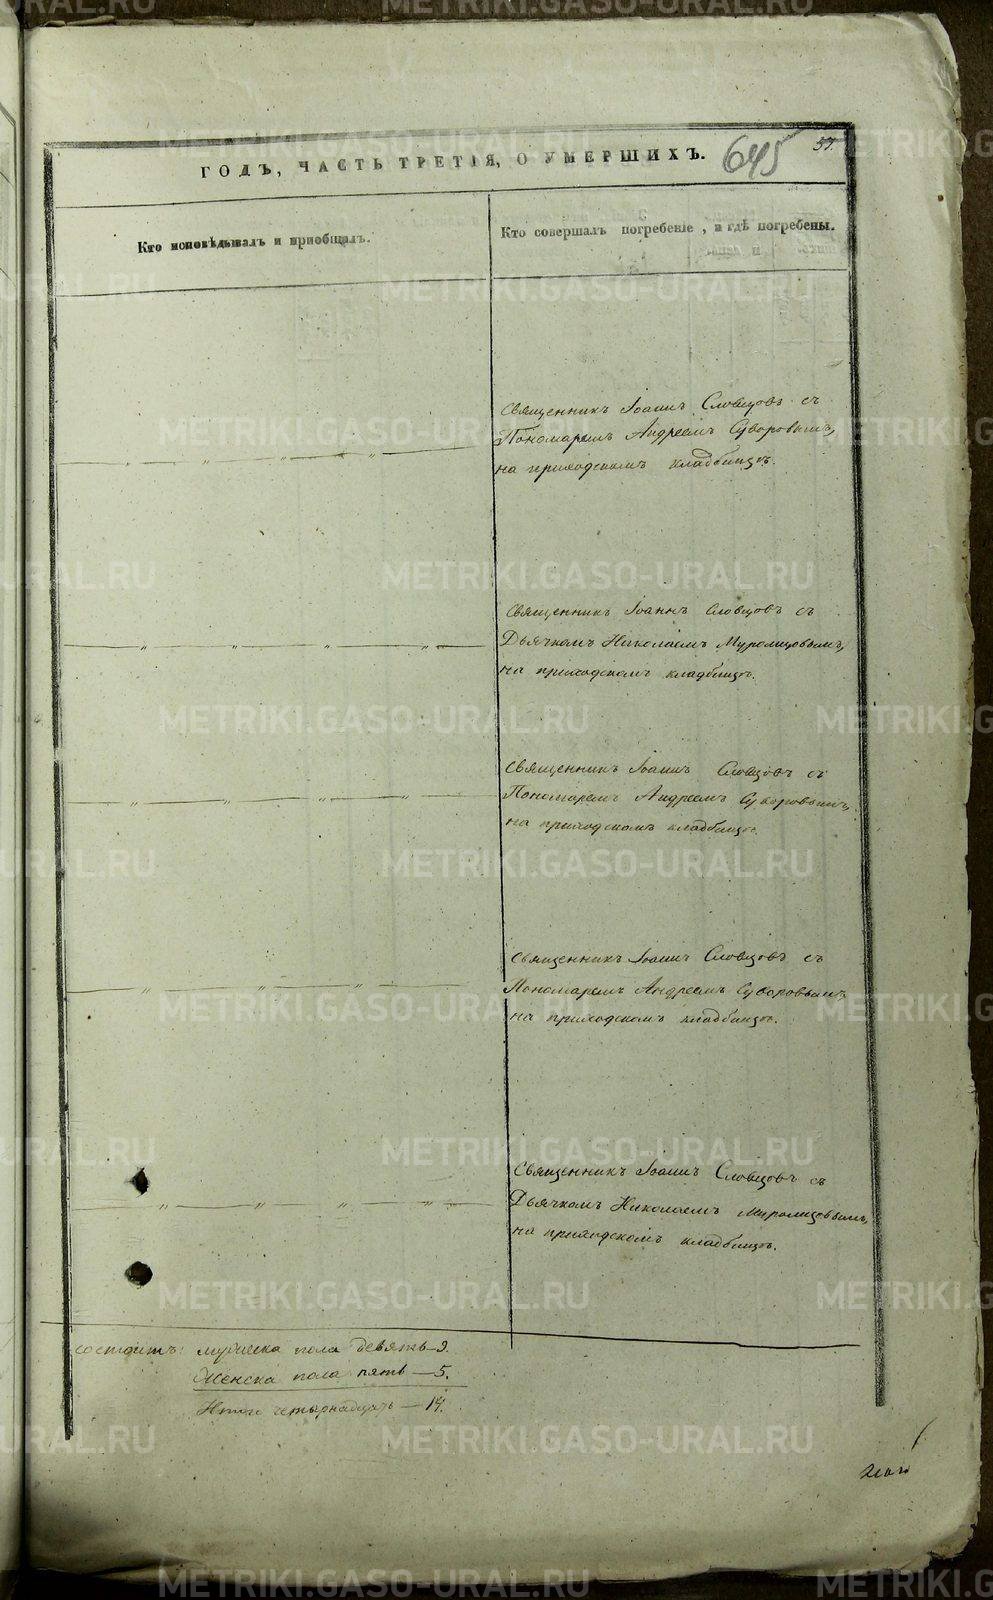 ГОДЪ, ЧАСТЬ ТРЕТІЯ, О УМЕРШИХЪ.
645
57.
Кто исповѣдывалъ и пріобщалъ.
Кто совершалъ погребеніе, и гдѣ погребены.
Священникъ Іоаннъ Словцовъ съ
Пономаремъ Андреемъ Суворовымъ,
на приходскомъ кладбищѣ.
Священникъ Іоаннъ Словцовъ съ
Дьячкомъ Николаемъ Муромцовымъ,
на приходскомъ кладбищѣ.
Священникъ Іоаннъ Словцовъ съ
Пономаремъ Андреемъ Суворовымъ,
на приходскомъ кладбищѣ.
Священникъ Іоаннъ Словцовъ съ
Пономаремъ Андреемъ Суворовымъ,
на приходскомъ кладбищѣ.
Священникъ Іоаннъ Словцовъ съ
Дьячкомъ Николаемъ Муромцовымъ,
на приходскомъ кладбищѣ.
состоитъ: мужеска пола девять — 9.
Женска пола пять — 5.
Итого четырнадцать — 14.
METRIKI.GASO-URAL.RU